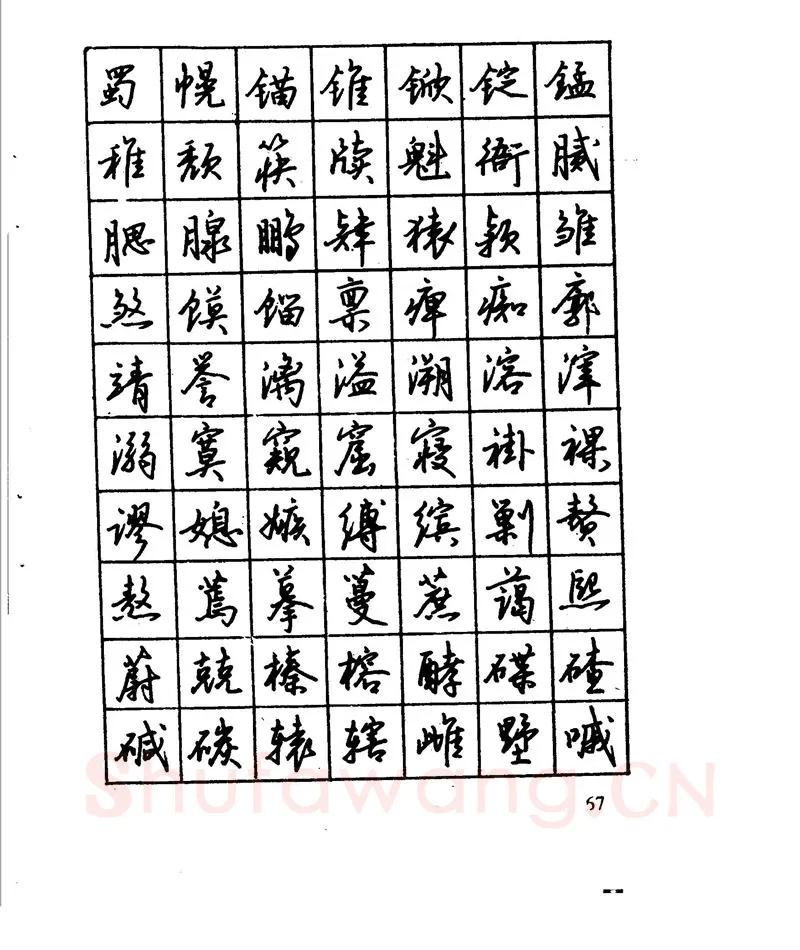 蜀 幌 锚 锥 锨 锭 锰
稚 颓 筷 牍 魁 衙 腻
腮 腺 鹏 肆 猿 颖 雏
煞 馍 馏 禀 痹 痴 廓
靖 誉 漓 溢 溯 溶 滓
溺 寞 窥 窟 寝 褂 裸
谬 媳 嫉 缚 缤 剿 赘
熬 蔫 摹 蔓 蔗 蔼 熙
蔚 兢 榛 榕 酵 碟 碴
碱 碳 辕 辖 雌 墅 嘁
Shufawang.CN
57